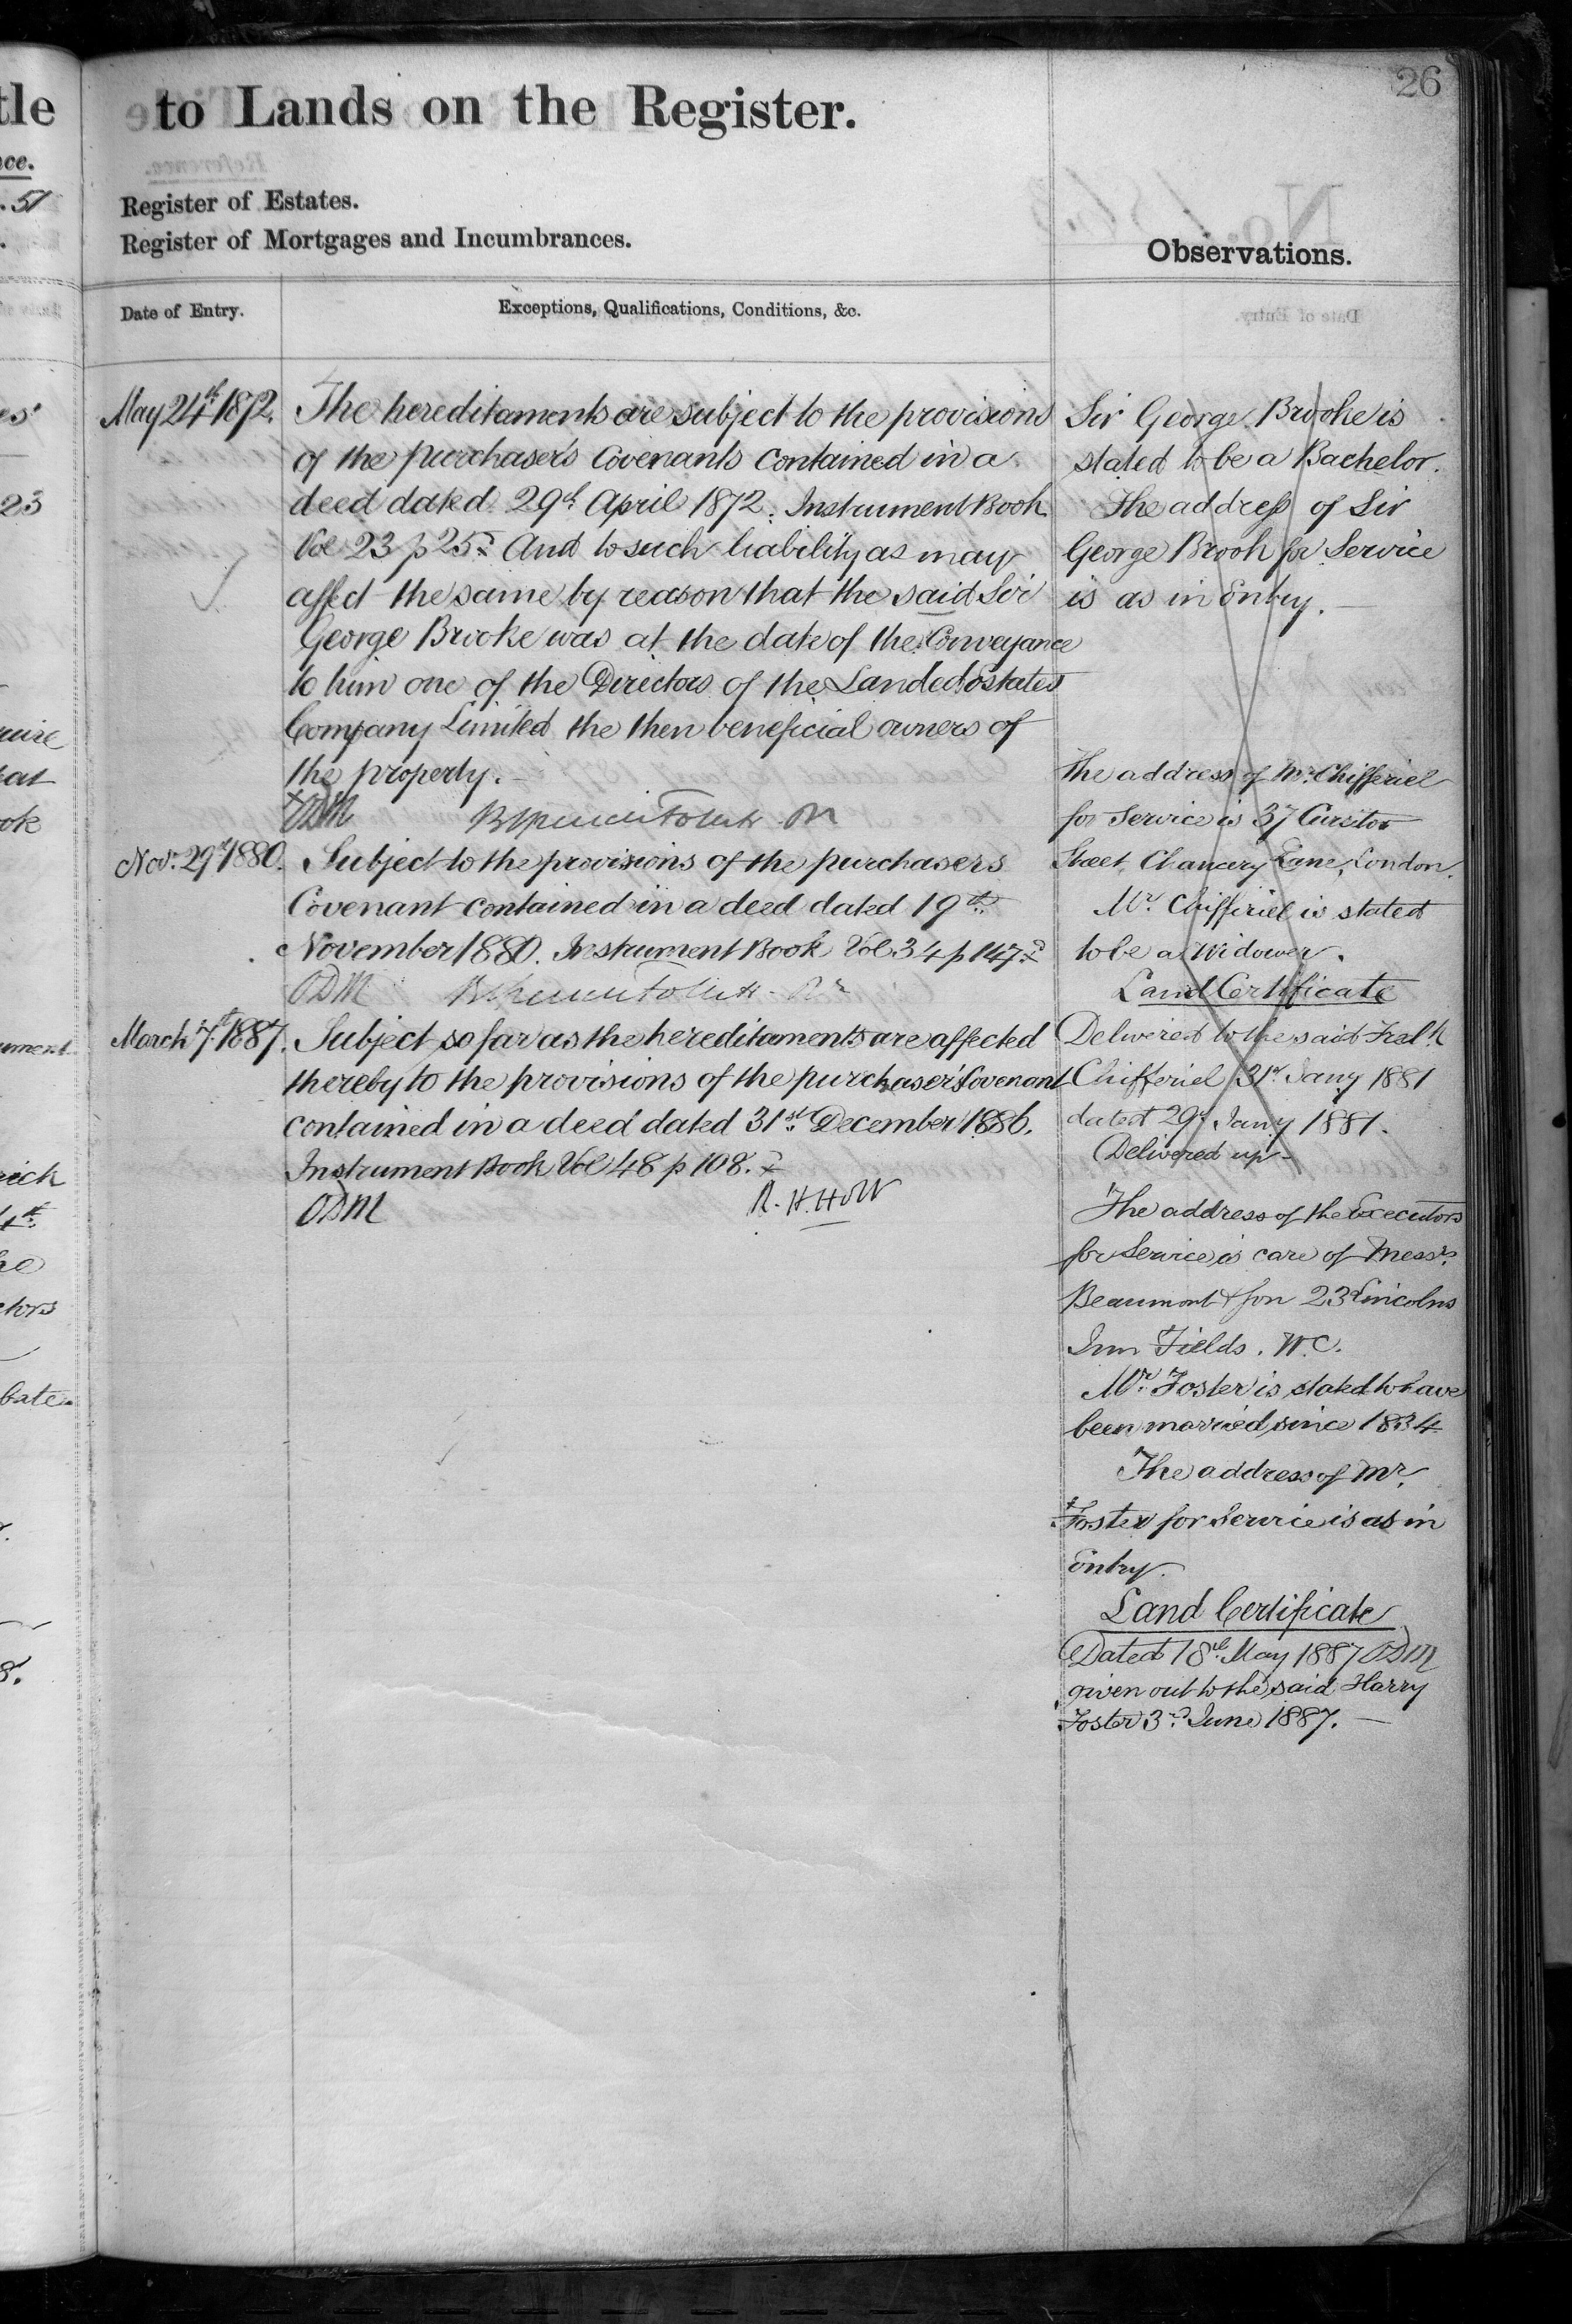 26
to Lands on the Register.
Register of Estates.
Register of Mortgages and Incumbrances.
Observations.
Date of Entry.
Exceptions, Qualifications, Conditions, &c.
May 24th 1872.
The hereditaments are subject to the provisions
of the purchasers Covenants Contained in a
deed dated 29th April 1872. Instrument Book
Vol 23 p 25. And to such liability as may
affect the same by reason that the said Sir
George Brooke was at the date of the Conveyance
to him one of the Directors of the Landed Estates
Company Limited the then beneficial owners of
the property.
ODM
Nov. 29th 1880.
Subject to the provisions of the purchasers
Covenant contained in a deed dated 19th
November 1880. Instrument Book Vol 34 p 147.
ODM
March 7th 1887.
Subject so far as the hereditaments are affected
thereby to the provisions of the purchaser's Covenant
contained in a deed dated 31st December 1886.
Instrument Book Vol 48 p 108.
ODM R. H. Holt
Sir George Brooke is
stated to be a Bachelor.
The address of Sir
George Brook for Service
is as in Entry.
The address of Mr. Chifferiel
for Service is 37 Cursitor
Street, Chancery Lane, London.
Mr. Chifferiel is stated
to be a Widower.
Land Certificate
Delivered to the said Fredk
Chifferiel 31st Jany 1881
dated 29th Jany 1881.
Delivered up
The address of the Executors
for Service is care of Messrs.
Beaumont & Son 23 Lincolns
Inn Fields. W.C.
Mr. Foster is stated to have
been married since 1834
The address of Mr.
Foster for Service is as in
Entry.
Land Certificate
Dated 18th May 1887 ODM
given out to the said Harry
Foster 3rd June 1887.